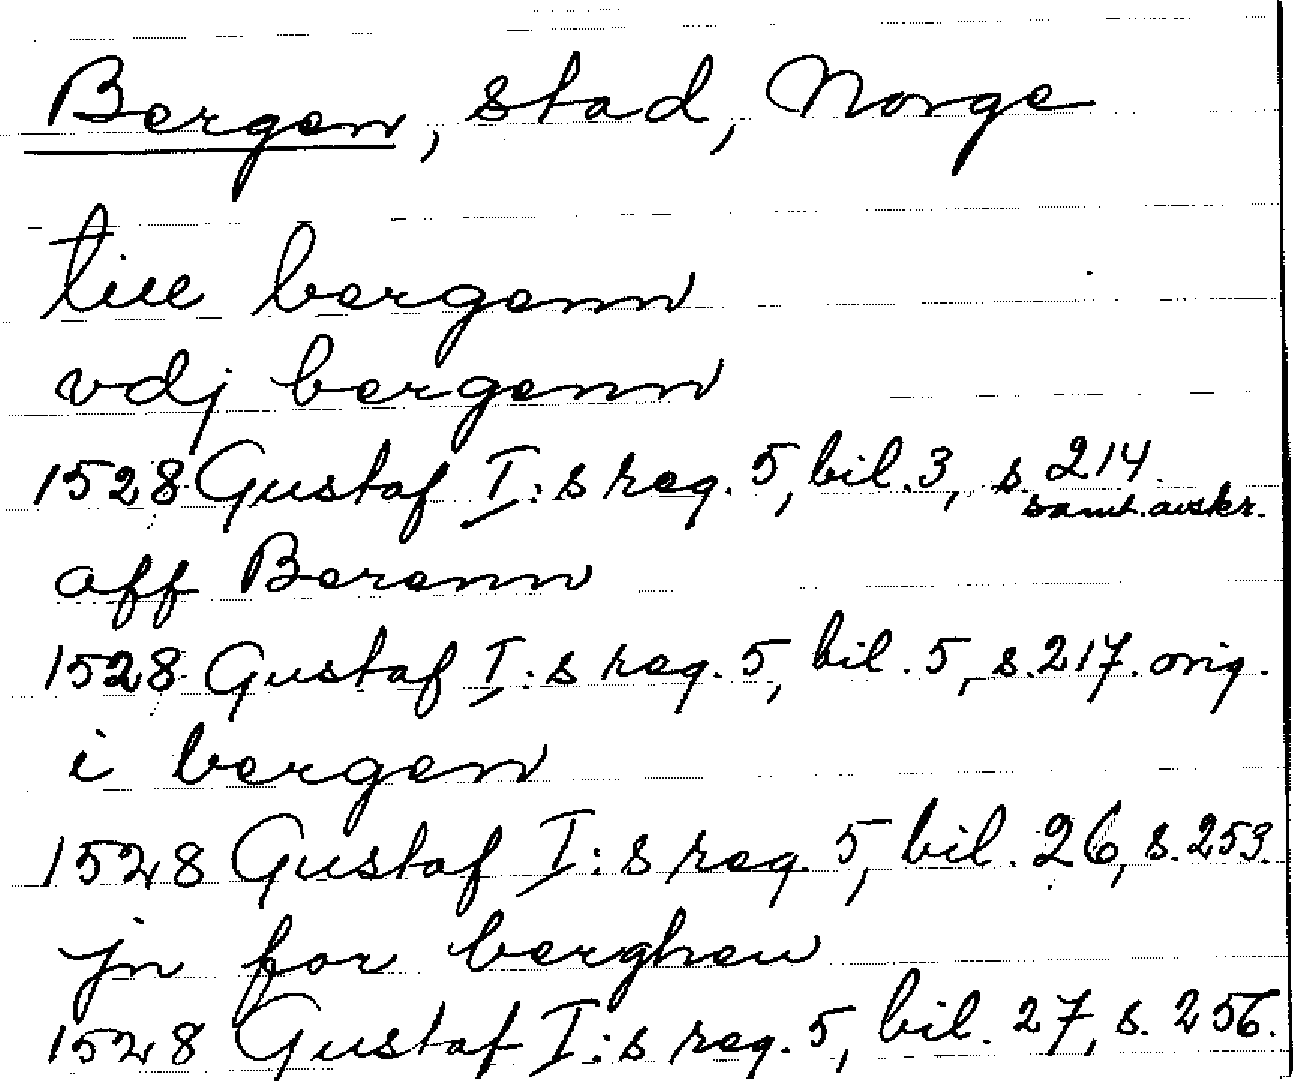 Bergen, stad, Norge
till bergenn
vdj bergenn
1528 Gustaf I:s reg. 5, bil. 3, s. 214.
samt. avskr.
aff Berenn
1528 Gustaf I:s reg. 5, bil. 5, s. 217. orig.
i bergen
1528 Gustaf I:s reg. 5, bil. 26, s. 253.
jn for berghen
1528 Gustaf I:s reg. 5, bil. 27, s. 256.